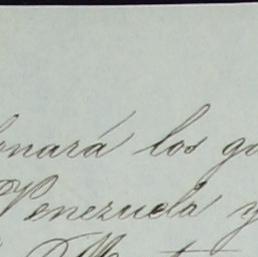 onará los go
Venezuela y